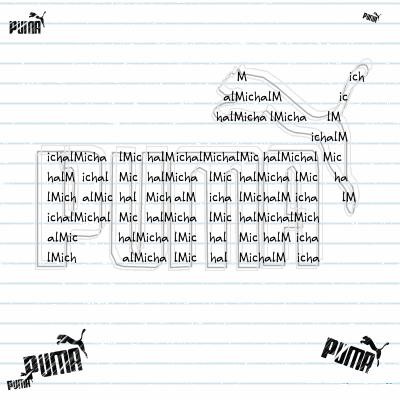 PUMA PUMA
M ich
alMichalM ic
halMicha lMicha lM
ichalM
ichalMicha lMic halMichalMichalMic halMichal Mic
halM ichal Mic halMicha lMic halMicha lMic ha
lMich alMic hal Mich alM icha lMichalM icha lM
ichalMichal Mic halMicha lMic halMichalMich
alMic halMicha lMic hal Mic halM icha
lMich alMicha lMic hal MichalM icha
PUMA PUMA
PUMA